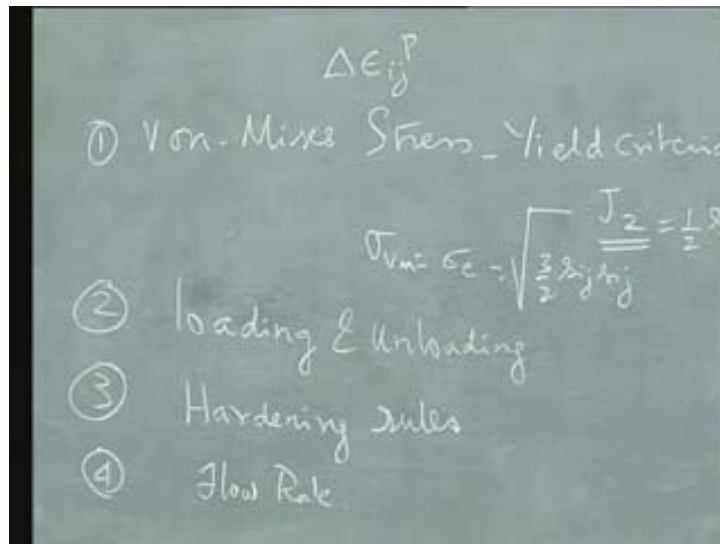 Δϵᵢⱼᴾ
① Von-Mises Stress - Yield criteria
J₂ = 1/2 s
σvm = σe = √ 3/2 sij sij
② loading & Unloading
③ Hardening rules
④ Flow Rule